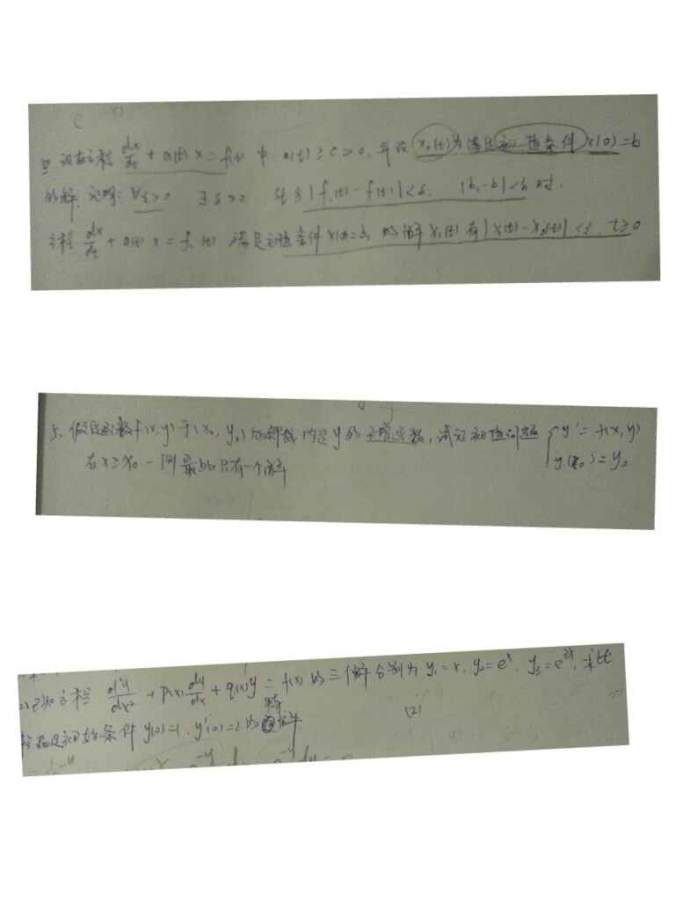 设在方程 dx/dt + a(t)x = f(t) 中 a(t) ≥ c > 0, x₀(t) 为满足初值条件 x(0)=b
的解. 证明: ∀ε>0 ∃δ>0 |f₁(t) - f(t)| < δ, |b₁-b| < δ 时.
方程 dx/dt + a(t) x = f₁(t) 满足初值条件 x(0)=b₁ 的解 x₁(t) 有 |x₁(t) - x₀(t)| < ε, t≥0
5. 假设函数 f(x,y) 于 (x₀, y₀) 的邻域内是 y 的 函数, 试证初值问题 { y' = f(x,y)
y(x₀) = y₀
在 x≥x₀ 一侧最多只有一个解
已知方程 d²y/dx² + p(x) dy/dx + q(x)y = f(x) 的三个解分别为 y₁=x, y₂=eˣ, y₃=e²ˣ, 求此
方程满足初始条件 y(0)=1, y'(0)=2 的特解
(2)